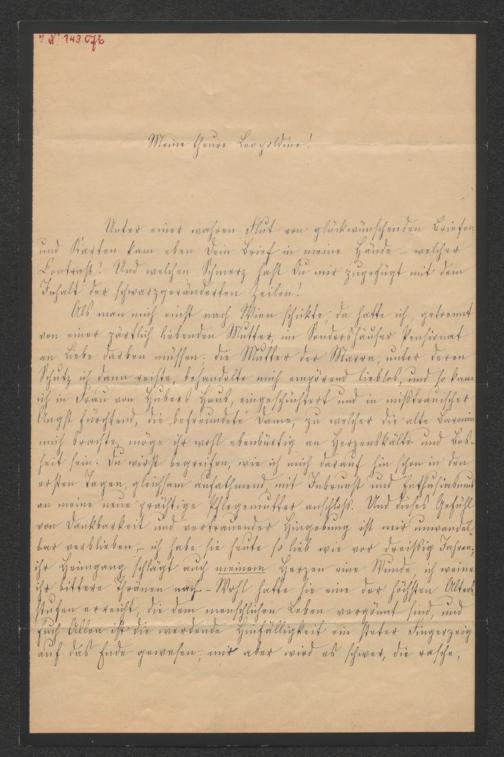 J. N. 149.076
Meine theure Leopoldine!
Unter einer wahren Flut von glückwünschenden Briefen
und Karten kam eben Dein Brief in meine Hände – welcher
Contrast! Und welchen Schmerz hast Du mir zugefügt mit dem
Inhalt der schwarzgeränderten Zeilen!
Als man mich einst nach Wien schickte, da hatte ich, getrennt
von einer zärtlich liebenden Mutter, im Sondershäuser Pensionat
an Liebe darben müssen; die Mutter der unter deren
Schutz ich dann reiste, behandelte mich empörend lieblos, und so kam
ich in Frau von Hubers Haus, eingeschüchtert und in mißtrauischer
Angst fürchtend, die befreundete Dame, zu welcher die alte Baronin
mich brachte, möge ihr wohl ebenbürtig an Herzenskälte und Bos-
heit sein. Du wirst begreifen, wie ich mich darauf hin schon in den
ersten Tagen, gleichsam aufathmend, mit Inbrunst und Enthusiasmus
an meine neue prächtige Pflegemutter anschloß. Und dieses Gefühl
von Dankbarkeit und vertrauender Hingebung ist mir unwandel-
bar verblieben – ich habe sie heute so lieb wie vor dreißig Jahren;
ihr Heimgang schlägt auch meinem Herzen eine Wunde ich weine
ihr bittere Thränen nach – Wohl hatte sie eine der höchsten Alters-
stufen erreicht, die dem menschlichen Leben vergönnt sind, und
Euch Allen ist die werdende Hinfälligkeit ein steter Fingerzeig
auf das Ende gewesen; mir aber wird es schwer, die rasche,